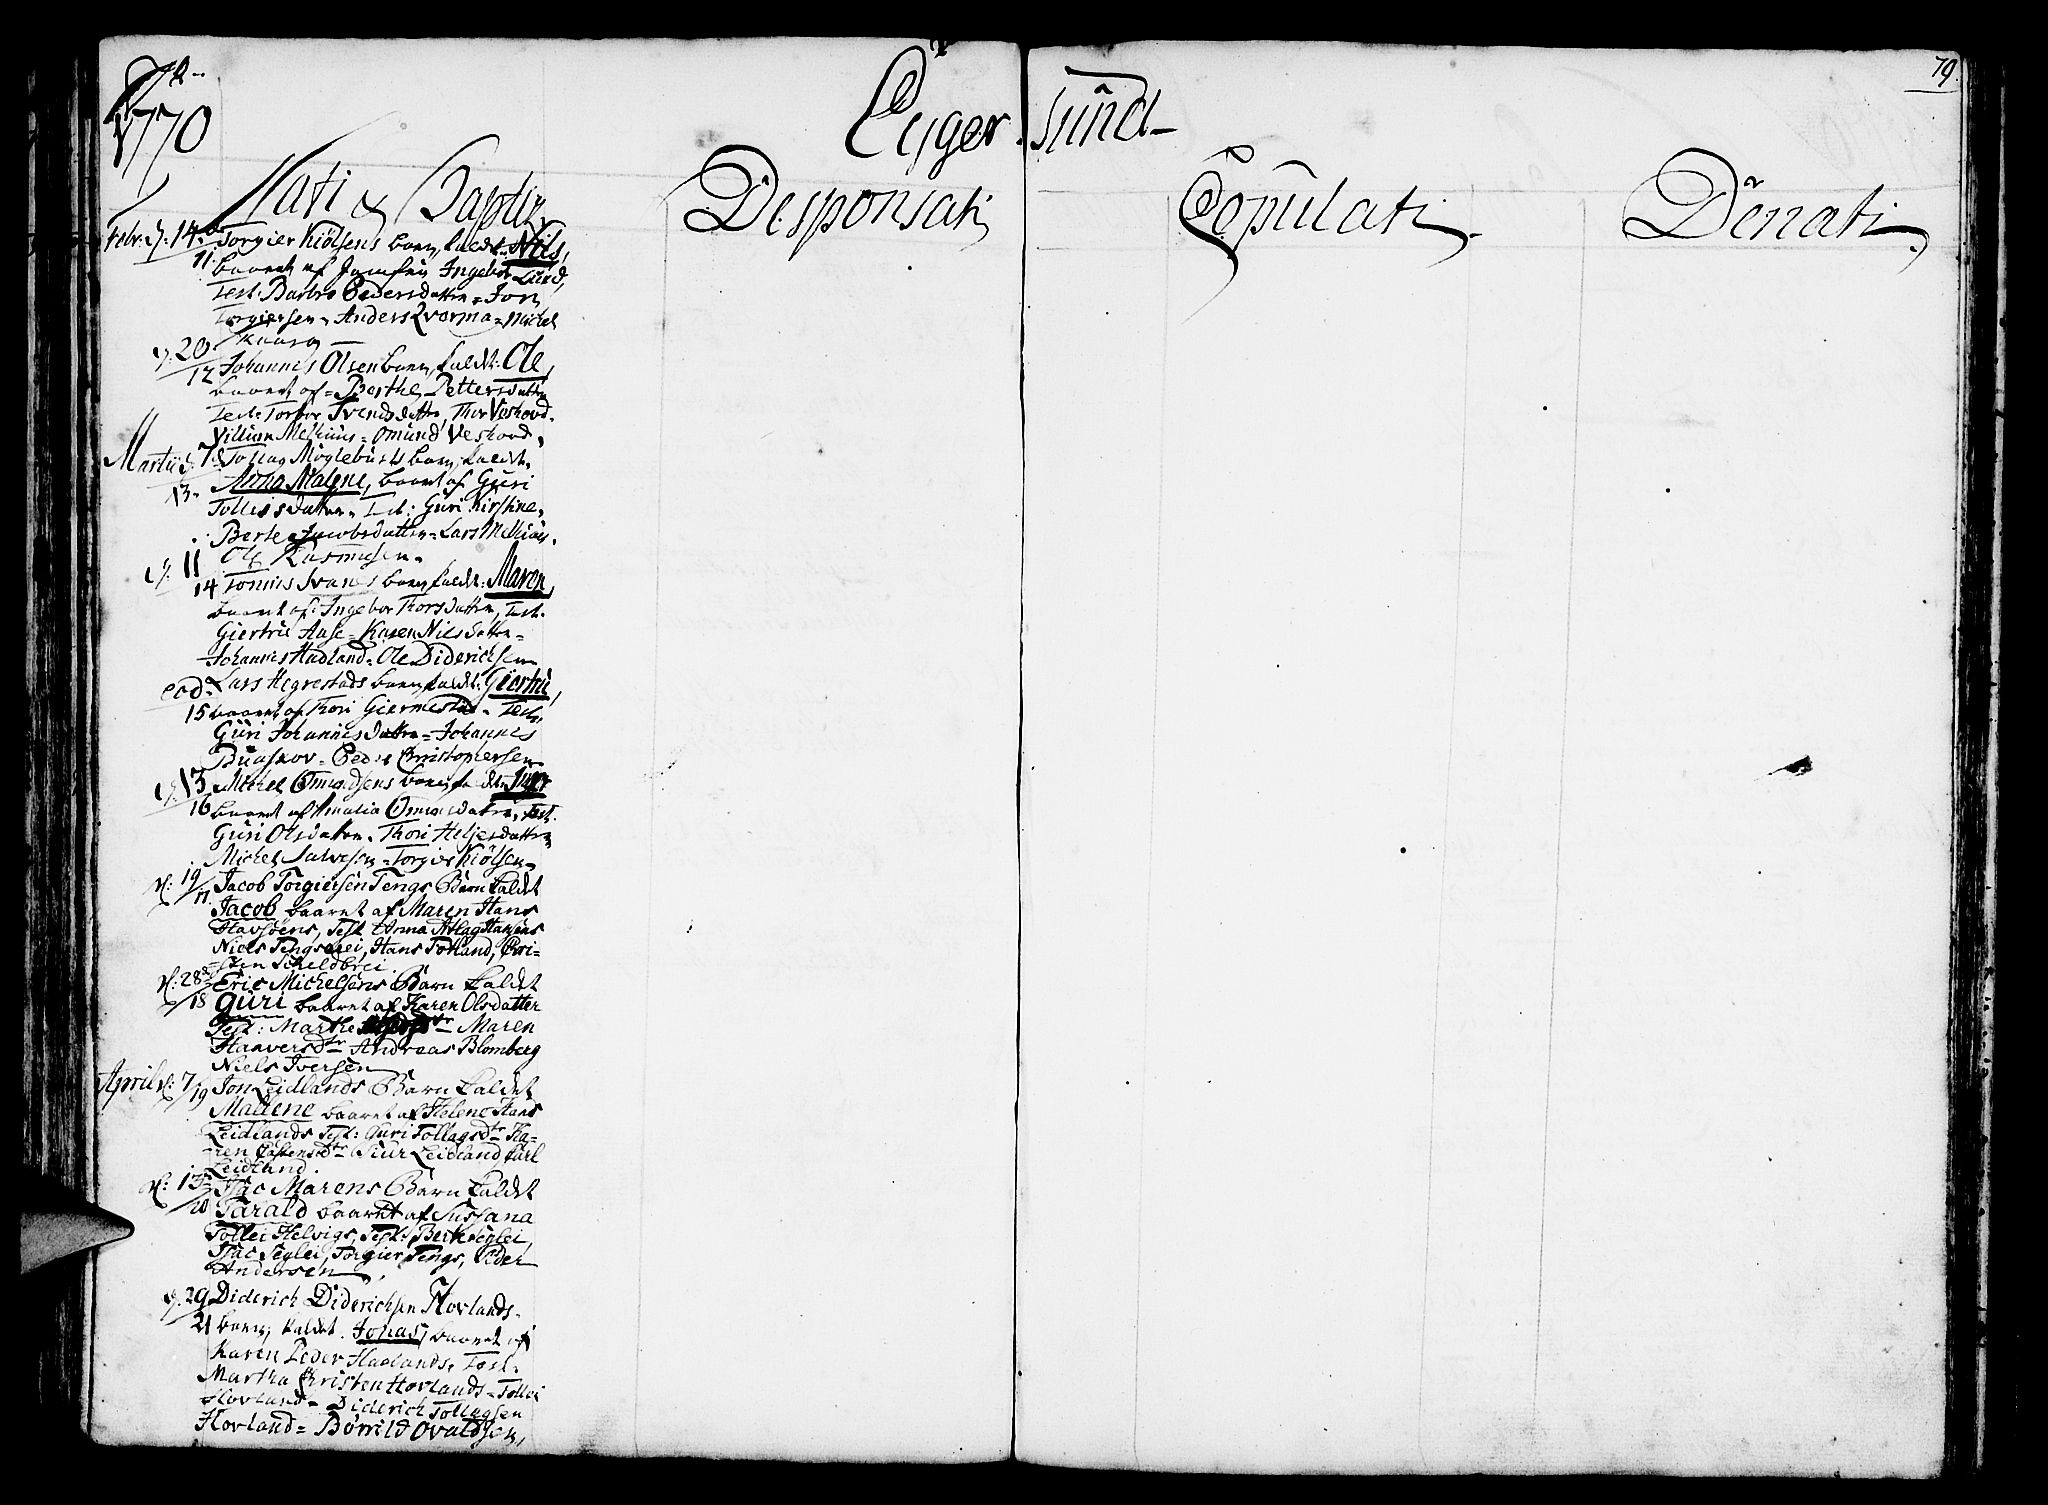 79.
Ao
1770
Eyger-sund-
Nati & Baptiz.
Desponsati
Copulati.
Denati.
Febr. d. 14. Torgier Kiölsens barn, kaldt Nils,
11. baaret af Jomfru Ingebor Lund,
Test. Barbro Pedersdatter = Jon
Torgiersen = Anders Qvorma = Michel
d. 20
12 Johannis Olsen barn, kaldt: Ole,
baaret af = Berthe Pettersdatter
Test: Torbor Svendsdatter, Thor Veshovd.
Villum Melhuus = Omund Veshovd.
Martii d. 7 Tollag Möglebusts barn, kaldt,
13. Anna Malene, baaret af Guri
Tollissdatter. Test: Guri Kirstine,
Berte Jacobsdatter = Lars Melhuus.
d. 11 Ole Rasmusen.
14 Tonnis Svanes barn, kaldt: Maren,
baaret af: Ingebor Thorsdatter, Test.
Giertrü Aase = Karen Nilsdatter =
Johannes Hadland = Ole Diderichsen
eod. Lars Hegrestads barn, kaldt: Giertrü,
15 baaret af Thori Giermestad. Test,
Guri Johannisdatter = Johannis
Peder Christophersen
d. 13 Michel Omundsens barn, kaldt
16 baaret af Amalia Omunsdatter, Test.
Guri Olsdatter. Thori Heljesdatter
Michel Salvesen = Torgier Kiölsen
d: 19
17. Jacob Torgiersen Tengs Barn kaldet
Jacob baaret af Maren Hans
Havsöens, Test Anna Atlag Hansens
Niels Tengsarei, Hans Totland, Chri-
sten Skeldbrei
d: 28 Eric Michelsens Barn kaldet
18 Guri baaret af Karen Olsdatter
Test: Marthe Maren
Hanversdtr Andreas Blomberg
Niels Iversen
April d: 7
19 Jon Leidlands Barn kaldet
Mallene baaret af Helene Hans
Leidlands Test: Guri Tollagsdtr Ka-
ren Castensdtr Siur Leidland, Carl
Leidland
d: 13 Isac Marens Barn kaldet
20 Tarald baaret af Sussana
Tollei Helvigs, Test: Berte Seglei,
Isac Seglei, Torgier Tengs, Peder
Andersen
d. 29 Diderich Diderichsen Hovlands
21 barn, kaldet. Jonas, baaret af
Karen Peder Haalands. Test.
Martha Christen Hovlands = Tollei
Hovland = Diderich Tollagsen
Hovland = Börrild Ovaldsen,